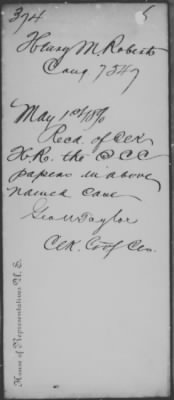 374
Henry M. Roberts
Cong 7347
May 1st 1870
Recd of Clk
H.R. the
papers in above
named case
Geo W Taylor
Clk. Co of Cls.
House of Representatives U. S.